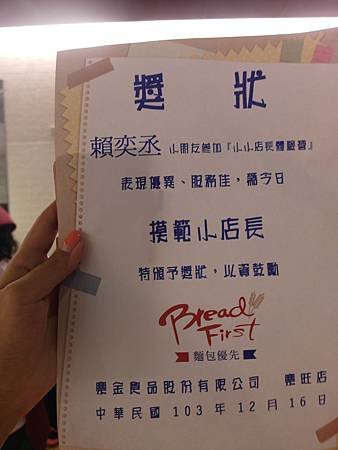 獎狀
賴奕丞 小朋友參加『小小店長體驗營』
表現優異、服務佳，為今日
模範小店長
特頒予獎狀，以資鼓勵
Bread First
麵包優先
樂金食品股份有限公司 樂旺店
中華民國 103 年 12 月 16 日